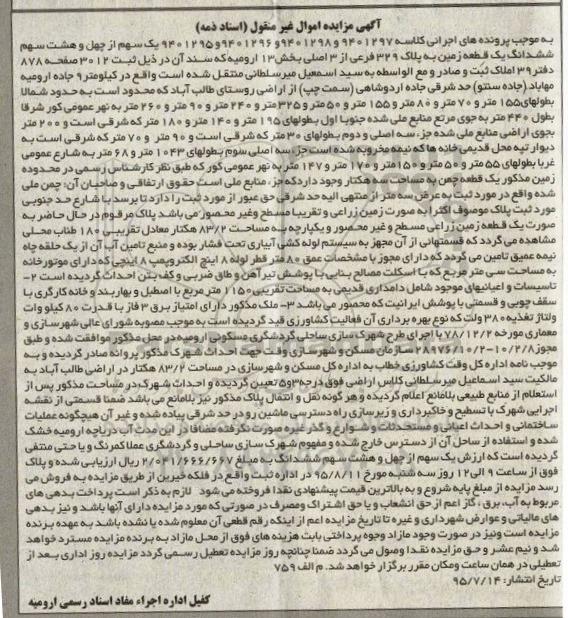 آگهی مزایده اموال غیر منقول (اسناد ذمه)
به موجب پرونده های اجرائی کلاسه ۹۴۰۱۲۹۷ و ۹۴۰۱۲۹۸ و ۹۴۰۱۲۹۶ و ۹۴۰۱۲۹۵ یک سهم از چهل و هشت سهم
ششدانگ یک قطعه زمین به پلاک ۳۲۹ فرعی از ۳ اصلی بخش ۱۳ ارومیه که سند آن در ذیل ثبت ۳۰۱۲ صفحه ۸۷۸
دفتر ۳۹ املاک ثبت و صادر و مع الواسطه به سید اسمعیل میرسلطانی منتقل شده است واقع در کیلومتر ۹ جاده ارومیه
مهاباد (جاده سنتو) حد شرقی جاده اردوشاهی (سمت چپ) از اراضی روستای طالب آباد که محدود است به حدود شمالا
بطولهای ۱۵۵ متر و ۷۰ متر و ۸۰ متر و ۱۵۵ متر و ۵۰ متر و ۳۲۵ متر و ۲۴۰ متر و ۹۰ متر و ۲۶۰ متر به نهر عمومی کور شرقا
بطول ۴۴۰ متر به جوی مرتع منابع ملی شده جنوبا اول بطولهای ۱۹۵ متر و ۱۴۰ متر و ۱۸۰ متر که شرقی است و ۲۰۰ متر
بجوی اراضی منابع ملی شده جزء سه اصلی و دوم بطولهای ۳۰ متر که شرقی است و ۹۰ متر و ۷۰ متر که شرقی است به
دیوار تپه محل قدیمی خانه ها که نیمه مخروبه شده است جزء سه اصلی سوم بطولهای ۱۰۴۳ متر و ۶۸ متر به شارع عمومی
غربا بطولهای ۵۵ متر و ۵۰ متر و ۱۵۰ متر و ۱۷۰ متر و ۱۴۷ متر به نهر عمومی کور که طبق نظر کارشناس رسمی در محدوده
زمین مذکور یک قطعه چمن به مساحت سه هکتار وجود دارد که جزء منابع ملی است حقوق ارتفاقی و صاحبان آن: چمن ملی
شده واقع در مورد ثبت به عرض سه متر از منتهی الیه حد شرقی حق عبور از مورد ثبت را دارد تا برسد با شارع حد جنوبی
مورد ثبت پلاک موصوف اکثرا به صورت زمین زراعی و تقریبا مسطح وغیر محصور می باشد پلاک مرقوم در حال حاضر به
صورت یک قطعه زمین زراعی مسطح و غیر محصور و یکپارچه به مساحت ۸۳/۲ هکتار معادل تقریبی ۱۸۰ طناب محلی
مشاهده می گردد که قسمتهائی از آن مجهز به سیستم لوله کشی آبیاری تحت فشار بوده و منبع تامین آب آن از یک حلقه چاه
نیمه عمیق تامین می گردد که دارای مجوز با مشخصات عمق ۸۰ متر قطر لوله ۸ اینچ الکتروپمپ ۸ اینچی که دارای موتورخانه
به مساحت سی متر مربع که با اسکلت مصالح بنایی با پوشش تیرآهن و طاق ضربی و کف بتن احداث گردیده است ۲-
تاسیسات و اعیانیهای موجود شامل دامداری قدیمی به مساحت تقریبی ۱۱۵۰ متر مربع با اصطبل و بهاربند و خانه کارگری با
سقف چوبی و قسمتی با پوشش ایرانیت که محصور می باشد ۳- ملک مذکور دارای امتیاز برق ۳ فاز با قدرت ۸۰ کیلو وات
ولتاژ تغذیه ۳۸۰ ولت که نوع بهره برداری آن فعالیت کشاورزی قید گردیده است به موجب مصوبه شورای عالی شهرسازی و
معماری مورخه ۷۸/۱۲/۲ با اجرای طرح شهرک سازی ساحلی گردشگری مسکونی ارومیه در محل مذکور موافقت شده و طبق
مجوز ۱۰/۲/۸-۲۸۹۷۶/۱۰/۲ سازمان مسکن و شهرسازی وقت جهت احداث شهرک مذکور پروانه صادر گردیده و به
موجب نامه اداره کل وقت کشاورزی خطاب به اداره کل مسکن و شهرسازی در مساحت ۸۳/۲ هکتار در اراضی طالب آباد به
مالکیت سید اسماعیل میرسلطانی کلاس اراضی فوق درجه ۳ و ۵ تعیین گردیده و احداث شهرک در مساحت مذکور پس از
استعلام از منابع طبیعی بلامانع اعلام گردیده و هر گونه نقل و انتقال پلاک مذکور نیز بلامانع می باشد ضمنا قسمتی از نقشه
اجرایی شهرک با تسطیح و خاکبرداری و زیرسازی راه دسترسی ماشین رو در حد شرقی پیاده شده و غیر آن هیچگونه عملیات
ساختمانی و احداث اعیانی و مستحدثات و شوارع و گذر غیره صورت نگرفته مضافا در این مدت آب دریاچه ارومیه خشک
شده و استفاده از ساحل آن از دسترس خارج شده و مفهوم شهرک سازی ساحلی و گردشگری عملا کمرنگ و یا حتی منتفی
گردیده است که ارزش یک سهم از چهل و هشت سهم ششدانگ به مبلغ ۲/۰۲۱/۶۶۶/۶۶۷ ریال ارزیابی شده و پلاک
فوق از ساعت ۹ الی ۱۲ روز سه شنبه مورخ ۹۵/۸/۱۱ در اداره ثبت واقع در فلکه خیرین از طریق مزایده به فروش می
رسد مزایده از مبلغ پایه شروع و به بالاترین قیمت پیشنهادی نقدا فروخته می شود لازم به ذکر است پرداخت بدهی های
مربوط به آب، برق، گاز اعم از حق انشعاب و یا حق اشتراک ومصرف در صورتی که مورد مزایده دارای آنها باشد و نیز بدهی
های مالیاتی و عوارض شهرداری و غیره تا تاریخ مزایده اعم از اینکه رقم قطعی آن معلوم شده یا نشده باشد به عهده برنده
مزایده است ونیز در صورت وجود مازاد وجوه پرداختی بابت هزینه های فوق از محل مازاد به برنده مزایده مسترد خواهد
شد و نیم عشر و حق مزایده نقدا وصول می گردد ضمنا چنانچه روز مزایده تعطیل رسمی گردد مزایده روز اداری بعد از
تعطیلی در همان ساعت ومکان مقرر برگزار خواهد شد. م الف ۷۵۹
تاریخ انتشار: ۹۵/۷/۱۴
کفیل اداره اجراء مفاد اسناد رسمی ارومیه